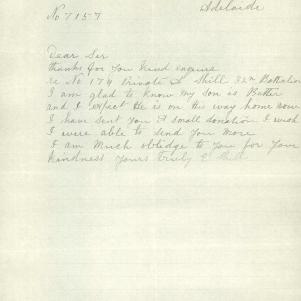 No 7157
Adelaide
Dear Ser
thanks for you kind enquire
re No 174 Private Shill 32nd Battalion
I am glad to know my son is Better
and I expect He is on this way home now
I have sent you A small donation I wish
I were able to send you more
I am Much oblidge to you for your
kindness yours truly E Shill